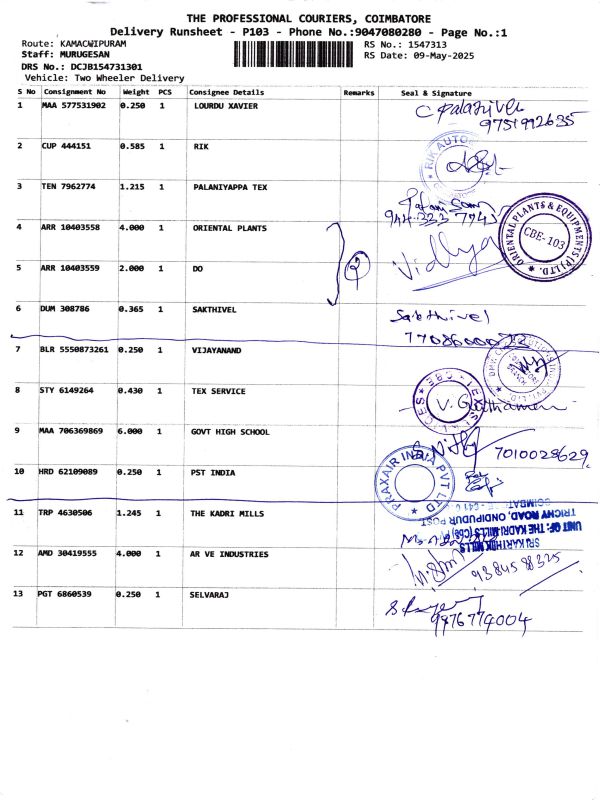 THE PROFESSIONAL COURIERS, COIMBATORE
Delivery Runsheet - P103 - Phone No.:9047080280 - Page No.:1
Route: KAMACWIPURAM
RS No.: 1547313
Staff: MURUGESAN
RS Date: 09-May-2025
DRS No.: DCJB154731301
Vehicle: Two Wheeler Delivery
S No Consignment No Weight PCS Consignee Details Remarks Seal & Signature
1 MAA 577531902 0.250 1 LOURDU XAVIER
9751992635
2 CUP 444151 0.585 1 RIK
RIK AUTO
3 TEN 7962774 1.215 1 PALANIYAPPA TEX
4 ARR 10403558 4.000 1 ORIENTAL PLANTS
Vidhya
ORIENTAL PLANTS & EQUIPMENTS (P) LTD.
CBE-103
5 ARR 10403559 2.000 1 DO
2
6 DUM 308786 0.365 1 SAKTHIVEL
Sakthivel
7 BLR 5550873261 0.250 1 VIJAYANAND
8 STY 6149264 0.430 1 TEX SERVICE
9 MAA 706369869 6.000 1 GOVT HIGH SCHOOL
7010028629
10 HRD 62109089 0.250 1 PST INDIA
PRAXAIR INDIA PVT LTD
11 TRP 4630506 1.245 1 THE KADRI MILLS
SRI KARTHIK MILLS
UNIT OF: THE KADRI MILLS (CBE)
TRICHY ROAD, ONDIPUDUR POST
12 AMD 30419555 4.000 1 AR VE INDUSTRIES
9384588325
13 PGT 6860539 0.250 1 SELVARAJ
9976779004